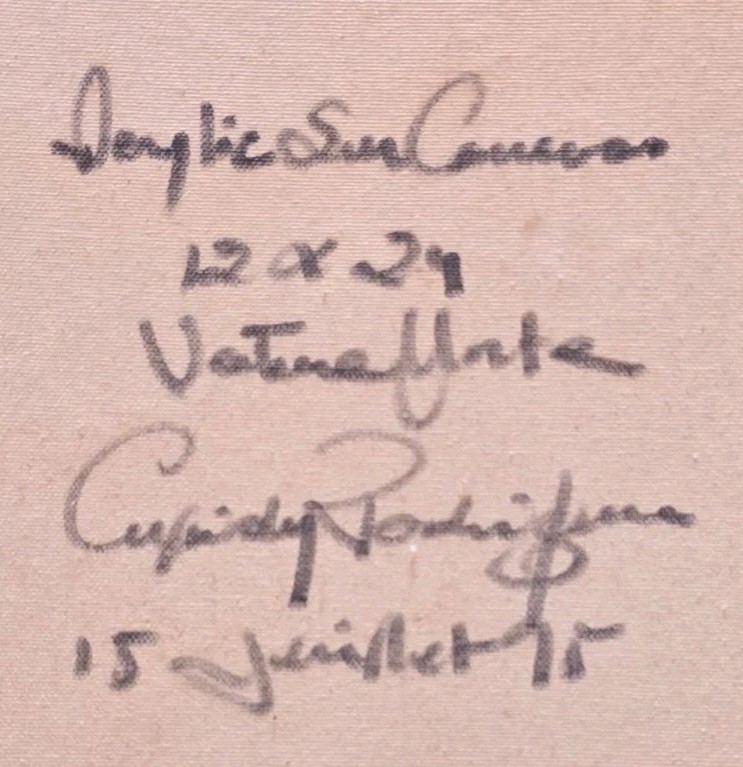 Acrylic Sur Canevas
12 x 24
Nature Morte
Cupidy Rodrigues
15 Juillet 95